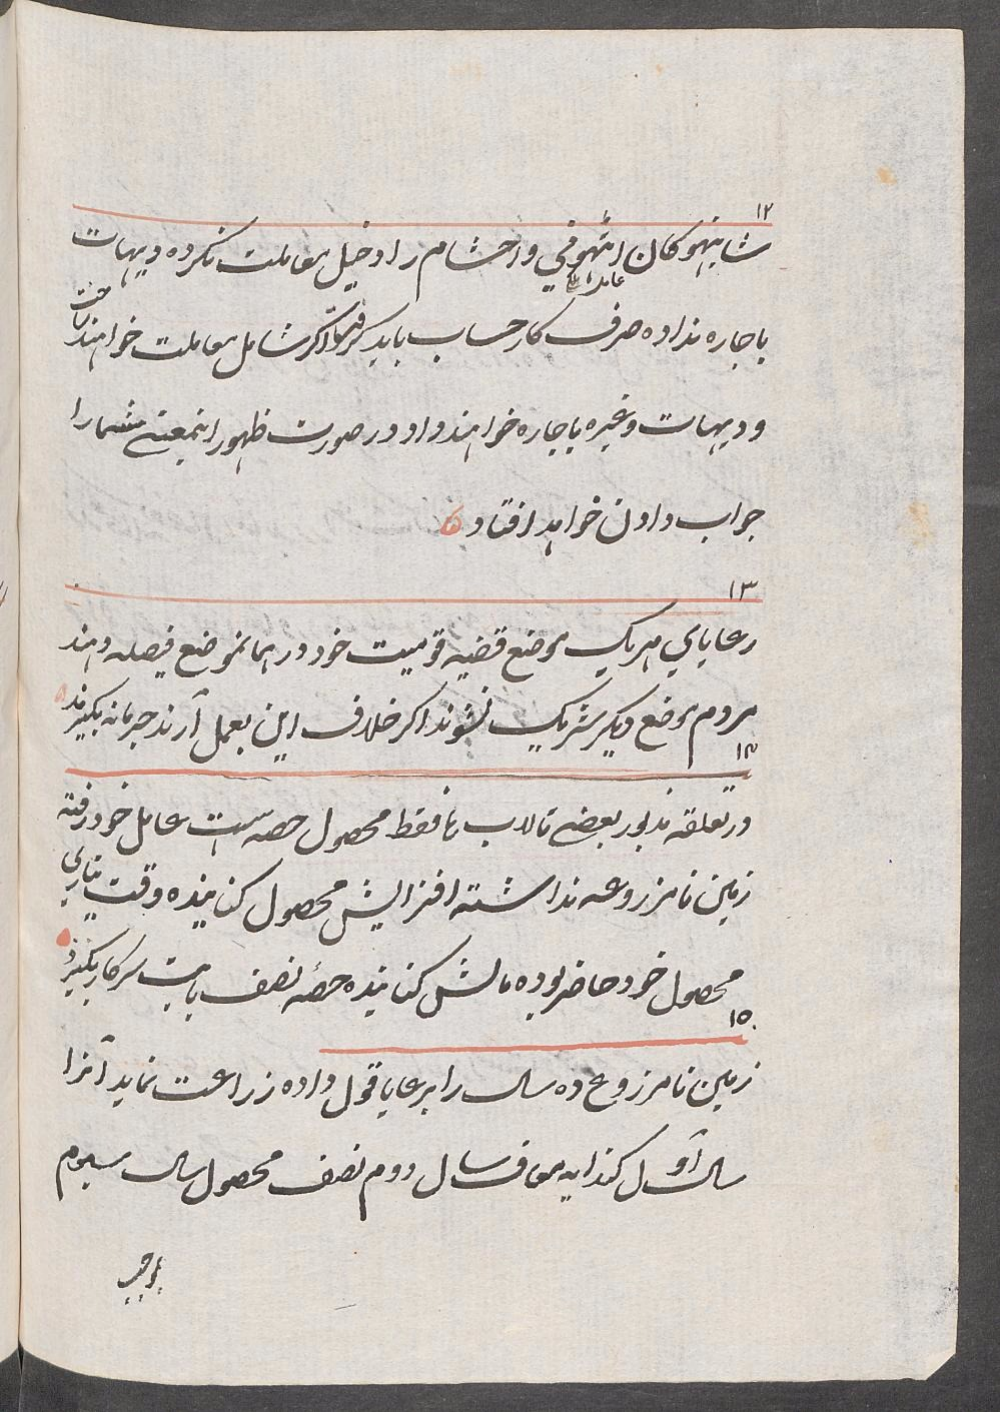 ۱۲
شانبهوکان اتهوفي و احشام را دخیل معاملت نکرده دیهات
باجاره نداده صرف کار حساب باید گرفت اگر شامل معاملت خواهند ساخت
و دیهات وغیره باجاره خواهند داد در صورت ظهور اینمعنی شما را
جواب دادن خواهد افتاد
۱۳
رعایاي هر یک موضع قضیه قومیت خود در همانموضع فیصله دهند
مردم موضع دیگر شریک نشوند اگر خلاف این بعمل آرند جرمانه بگیرند
۱۴
در تعلقه مذبور بعضی تالاب ها فقط محصول حصه ست عامل خود رفته
زمین نامزروعه نداشته افزایش محصول کنانیده وقت تیاري
محصول خود حاضر بوده مالش کنانیده حصّه نصف بابت سرکار بگیرند
۱۵
زمین نامزروع ده ساله را برعایا قول داده زراعت نماید آنرا
سال اوّل کندایه معاف سال دوم نصف محصول سال سیوم
بواجب